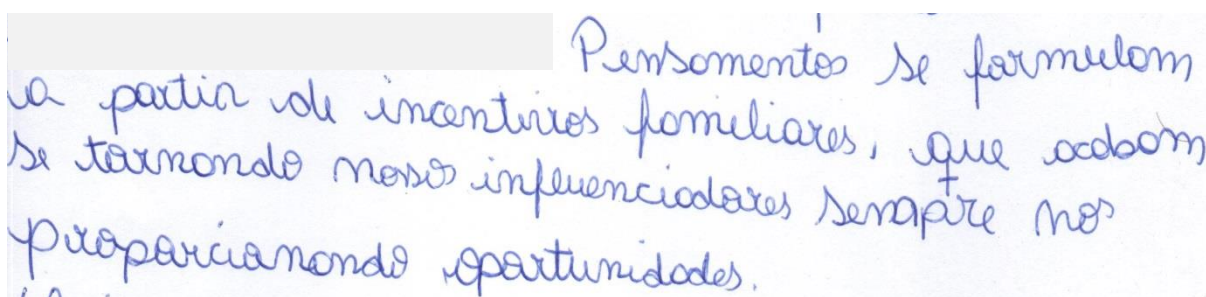 Pensamentos se formulam
a partir de incentivos familiares, que acabam
se tornando nossos influenciadores sempre nos
proporcionando oportunidades.